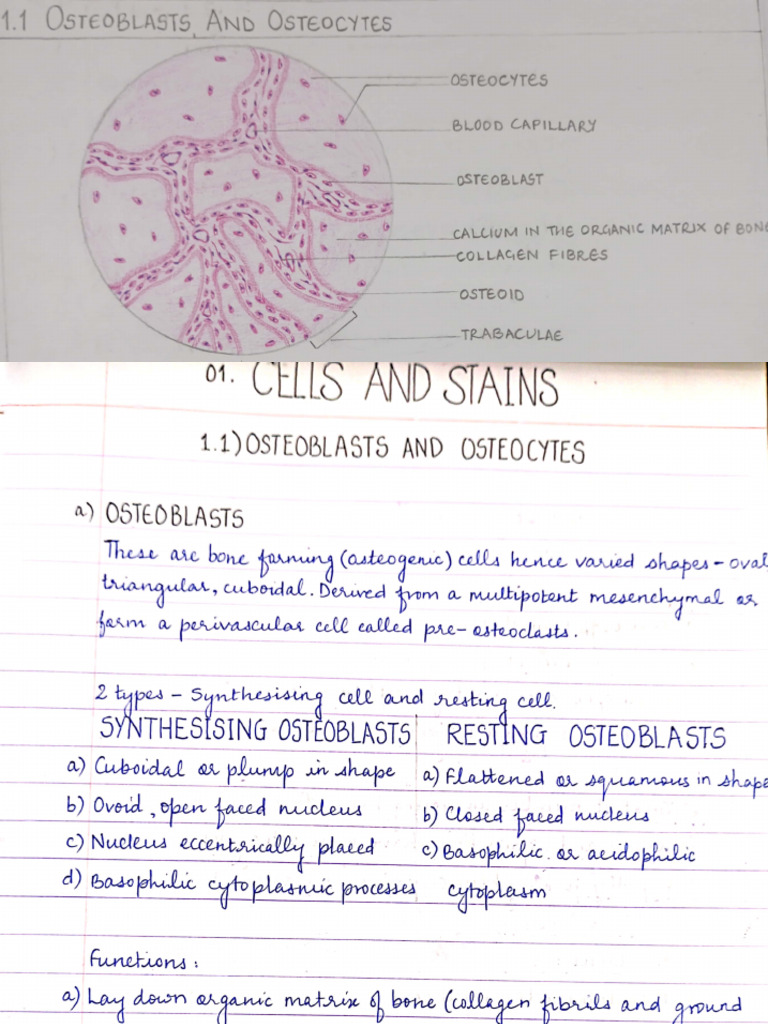 1.1 OSTEOBLASTS AND OSTEOCYTES
OSTEOCYTES
BLOOD CAPILLARY
OSTEOBLAST
CALCIUM IN THE ORGANIC MATRIX OF BONE
COLLAGEN FIBRES
OSTEOID
TRABACULAE
01. CELLS AND STAINS
1.1) OSTEOBLASTS AND OSTEOCYTES
a) OSTEOBLASTS
These are bone forming (osteogenic) cells hence varied shapes - oval
triangular, cuboidal. Derived from a multipotent mesenchymal or
form a perivascular cell called pre-osteoclasts.
2 types - Synthesising cell and resting cell.
SYNTHESISING OSTEOBLASTS RESTING OSTEOBLASTS
a) Cuboidal or plump in shape a) Flattened or squamous in shape
b) Ovoid, open faced nucleus b) Closed faced nucleus
c) Nucleus eccentrically placed c) Basophilic or acidophilic
d) Basophilic cytoplasmic processes cytoplasm
Functions:
a) Lay down organic matrix of bone (collagen fibrils and ground